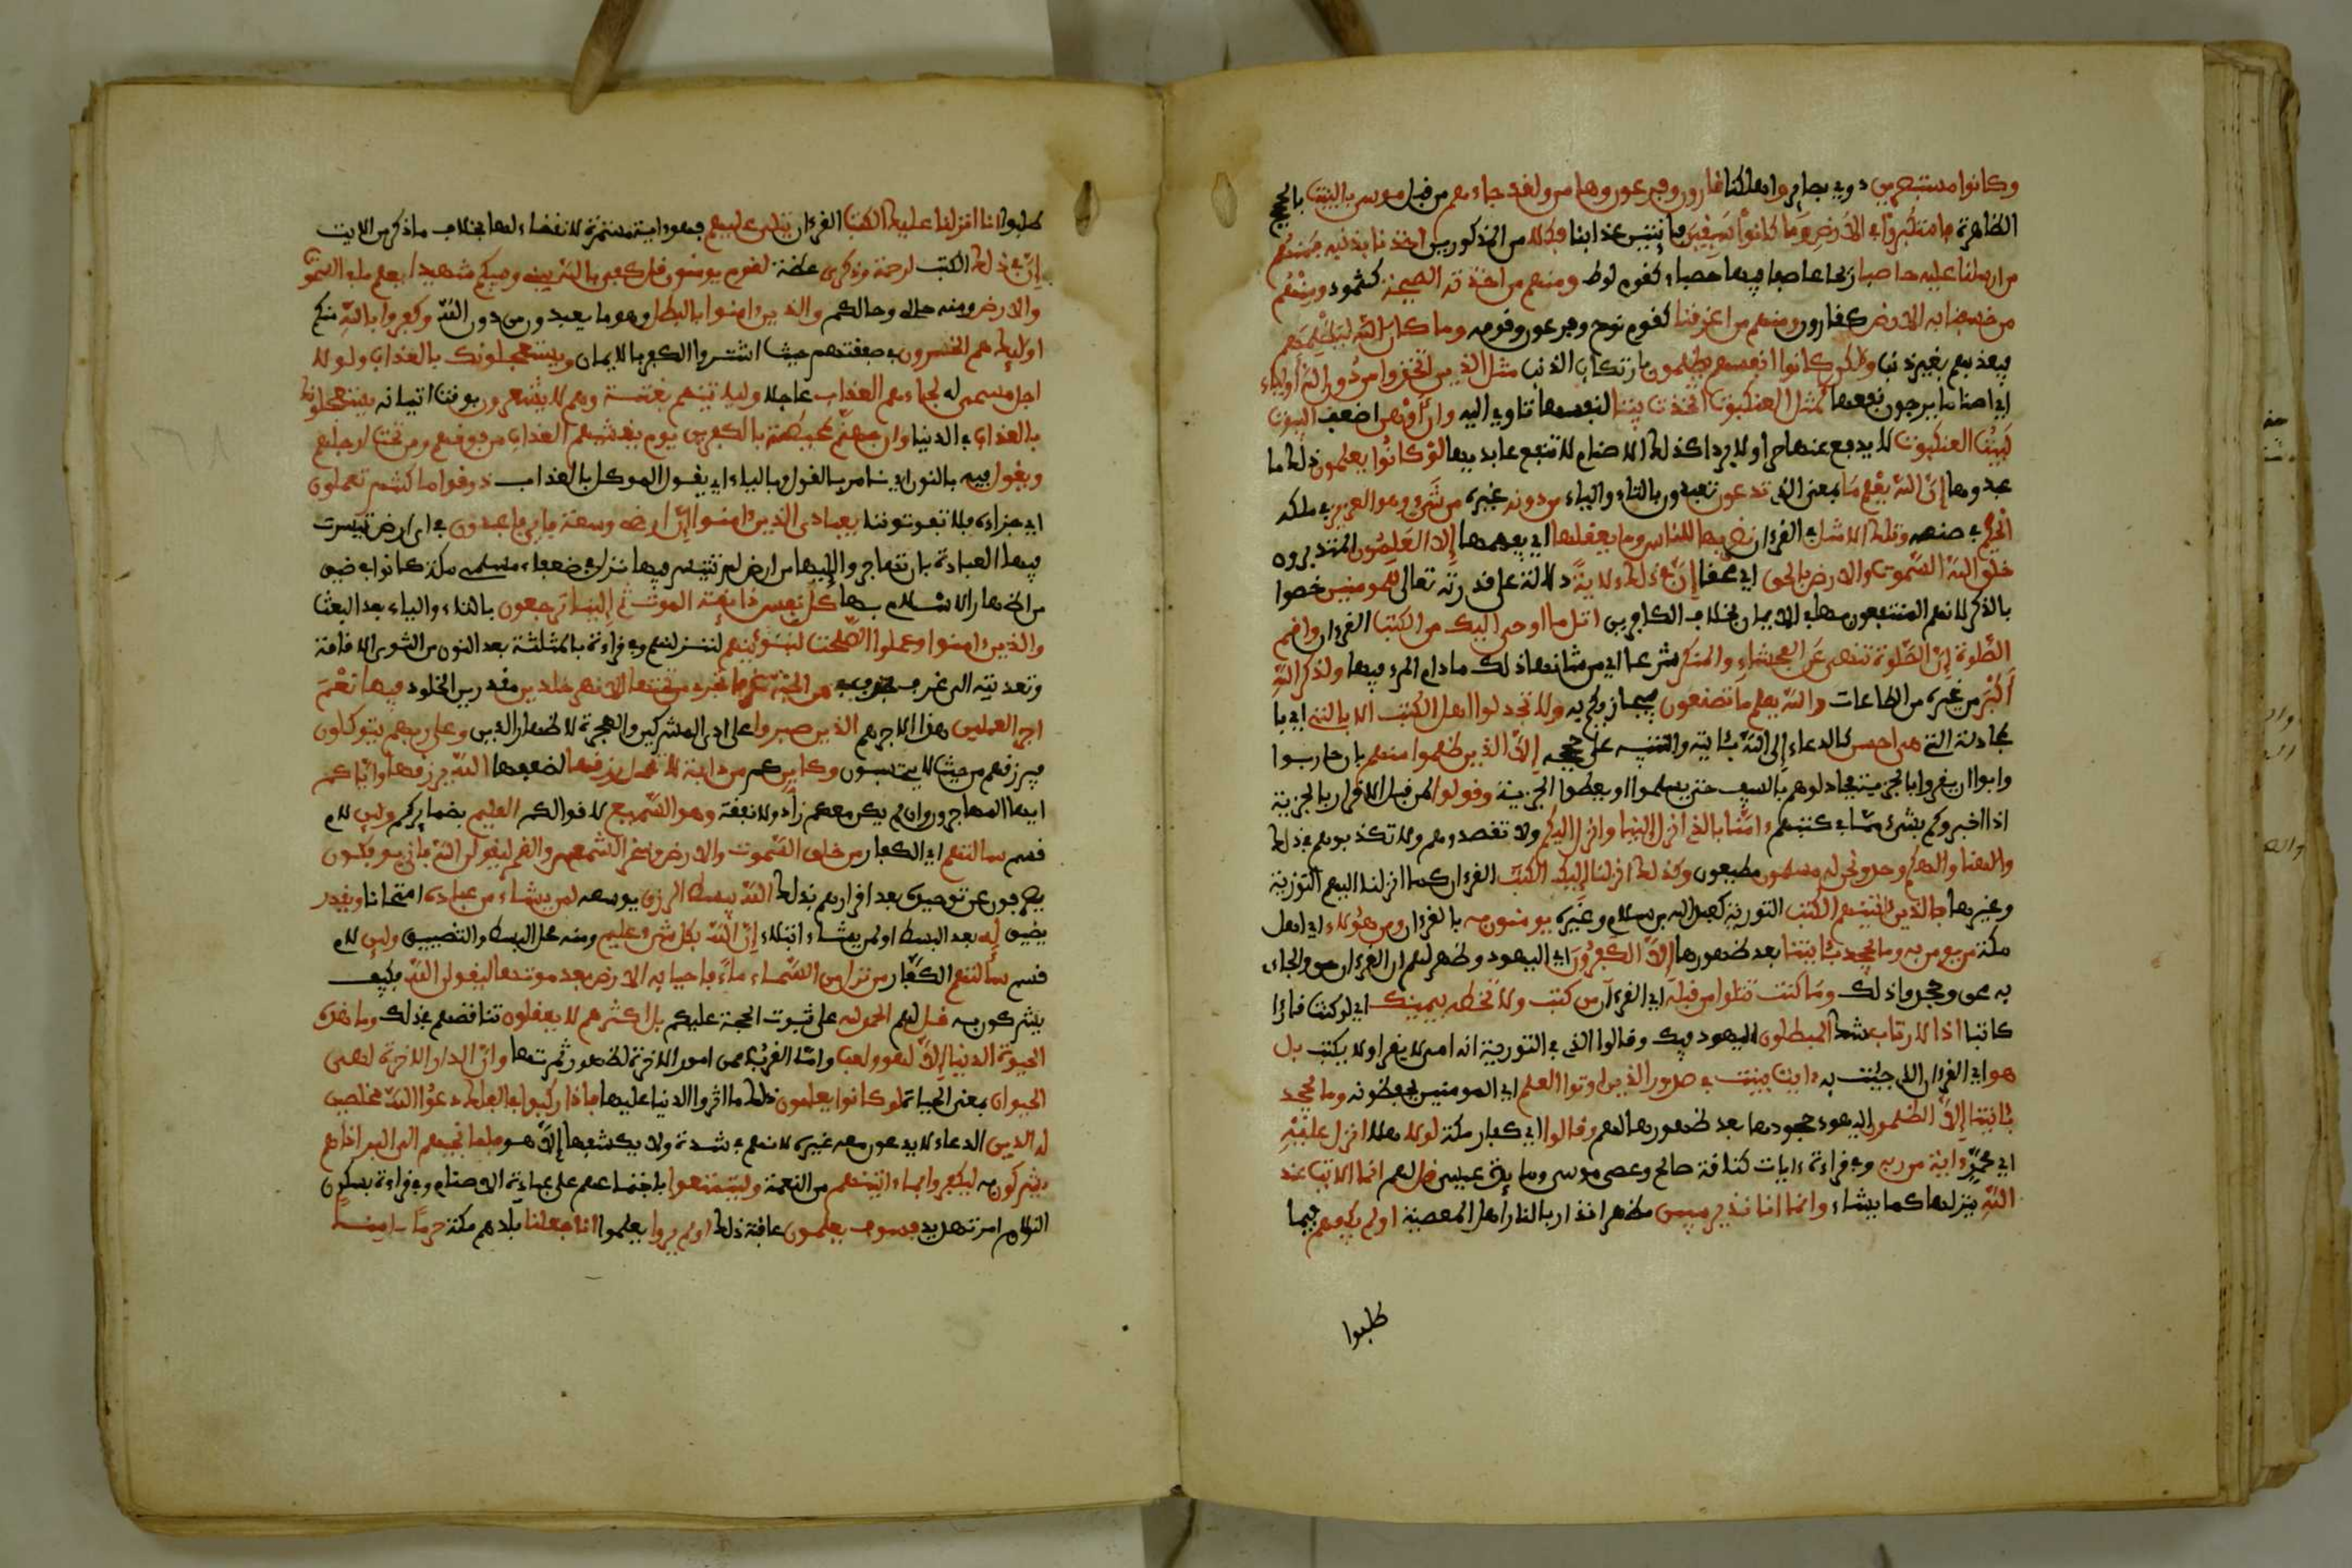 وكانوا مستبصرين ذوي بصاير واهلكنا قارون وفرعون وهامن ولقد جاءهم من قبل موسى بالبينت بالحجج
الظاهرة فاستكبروا في الارض وما كانوا سبقين فايتين عذابنا فكلا من المذكورين اخذنا بذنبه فمنهم
من ارسلنا عليه حاصبا ريحا عاصفا فيها حصباء كقوم لوط ومنهم من اخذته الصيحة كثمود ومنهم
من خسفنا به الارض كقارون ومنهم من اغرقنا كقوم نوح وفرعون وقومه وما كان الله ليظلمهم
فيعذبهم بغير ذنب ولكن كانوا انفسهم يظلمون بارتكاب الذنب مثل الذين اتخذوا من دون الله أولياء
اي اصناما يرجون نفعها كمثل العنكبوت اتخذت بيتا لنفسها تاوي اليه وان أوهن اضعف البيوت
لبيت العنكبوت لا يدفع عنها حرا ولا بردا كذلك الاصنام لا تنفع عابديها لو كانوا يعلمون ذلك ما
عبدوها إن الله يعلم ما بمعنى الذي تدعون تعبدون بالتاء والياء من دونه غيره من شيء وهو العزيز في ملكه
الحكيم في صنعه وتلك الامثل في القرءان نضربها للناس وما يعقلها اي يفهمها إلا العلمون المتدبرون
خلق الله السموت والارض بالحق اي محقا إن في ذلك ءلاية دلالة على قدرته تعالى للمومنين خصوا
بالذكر لانهم المنتفعون بها في الايمان بخلاف الكافرين اتل ما اوحي اليك من الكتب القرءان واقم
الصلوة إن الصلوة تنهى عن الفحشاء والمنكر شرعا اي من شانها ذلك ما دام المرء فيها ولذكر الله
أكبر من غيره من الطاعات والله يعلم ما تصنعون فيجازيكم به ولا تجدلوا اهل الكتب الا بالتي اي با
لمجادلة التي هي احسن كالدعاء إلى الله بئاياته والتنبيه على حججه إلا الذين ظلموا منهم بان حاربوا
وابوا ان يقروا بالجزية فجادلوهم بالسيف حتى يسلموا او يعطوا الجزية وقولوا لمن قبل الاقرار بالجزية
اذا اخبروكم بشيء مما في كتبهم ءامنا بالذي انزل الينا وانزل اليكم ولا تصدقوهم ولا تكذبوهم في ذلك
والهنا والهكم وحد ونحن له مسلمون مطيعون وكذلك انزلنا إليك الكتب القرءان كما انزلنا اليهم التورية
وغيرها فالذين ءاتينهم الكتب التورية كعبد الله بن سلام وغيره يومنون به بالقرءان ومن هؤلاء اي اهل
مكة من يومن به وما يجحد بئايتنا بعد ظهورها إلا الكفرون اي اليهود وظهر لهم ان القرءان حق والجاءي
به محق وجحدوا ذلك وما كنت تتلوا من قبله اي القرءان من كتب ولا تخطه بيمينك اي لو كنت قارءا
كاتبا اذا لارتاب شك المبطلون اليهود فيك وقالوا الذي في التورية انه امي لا يقرا ولا يكتب بل
هو اي القرءان الذي جيت به ءايت بينت في صدور الذين اوتوا العلم اي المومنين يحفظونه وما يجحد
بئايتنا إلا الظلمون اليهود جحدوها بعد ظهورها لهم وقالوا اي كفار مكة لولا هلا انزل عليه
اي محمد ءاية من ربه وفي قراءة ءايات كناقة صالح وعصى موسى ومايدة عيسى قل لهم انما الايت عند
الله ينزلها كما يشاء وانما انا نذير مبين مظهر انذار بالنار اهل المعصية اولم يكفهم فيما
طلبوا
طلبوا انا انزلنا عليك الكتب القرءان يتلى عليهم فهو ءاية مستمرة لا انقضاء لها بخلاف ما ذكر من الايت
إن في ذلك الكتب لرحمة وذكرى عظة لقوم يومنون قل كفى بالله بيني وبينكم شهيدا يعلم ما في السموت
والارض ومنه حالي وحالكم والذين ءامنوا بالبطل وهو ما يعبدون من دون الله وكفروا بالله منكم
اوليك هم الخسرون في صفقتهم حيث اشتروا الكفر بالايمان ويستعجلونك بالعذاب ولولا
اجل مسمى له لجاءهم العذاب عاجلا ولياتينهم بغتة وهم لا يشعرون بوقت اتيانه يستعجلونك
بالعذاب في الدنيا وان جهنم لمحيطة بالكفرين يوم يغشيهم العذاب من فوقهم ومن تحت ارجلهم
ويقول فيه بالنون اي نامر بالقول وبالياء اي يقول الموكل بالعذاب ذوقوا ما كنتم تعملون
اي جزاءه فلا تفوتوننا يعبادي الذين ءامنوا إن ارضي وسعة فايي فاعبدون في اي ارض تيسرت
فيها العبادة بان تهاجروا اليها من ارض لم تتيسر فيها نزل في ضعفاء مسلمي مكة كانوا في ضيق
من اظهار الاسلام بها كل نفس ذايقة الموت ثم إلينا ترجعون بالتاء والياء بعد البعث
والذين ءامنوا وعملوا الصلحت لنبوئنهم لننزلنهم وفي قراءة بالمثلثة بعد النون من الثوى الاقامة
وتعديته الى غرف بحذف في من الجنة غرفا تجري من تحتها الانهر خلدين مقدرين الخلود فيها نعم
اجر العملين هذا الاجر هم الذين صبروا على اذى المشركين والهجرة لاظهار الدين وعلى ربهم يتوكلون
فيرزقهم من حيث لا يحتسبون وكاين كم من دابة لا تحمل رزقها لضعفها الله يرزقها واياكم
ايها المهاجرون وان لم يكن معكم زاد ولا نفقة وهو السميع لاقوالكم العليم بضمايركم ولين لام
قسم سالتهم اي الكفار من خلق السموت والارض وسخر الشمس والقمر ليقولن الله فانى يوفكون
يصرفون عن توحيده بعد اقرارهم بذلك الله يبسط الرزق يوسعه لمن يشاء من عباده امتحانا ويقدر
يضيق له بعد البسط او لمن يشاء ابتلاء إن الله بكل شيء عليم ومنه محل البسط والتضييق ولين لام
قسم سالتهم الكفار من نزل من السماء ماء فاحيا به الارض بعد موتها ليقولن الله فكيف
يشركون به قل لهم الحمد لله على ثبوت الحجة عليكم بل اكثرهم لا يعقلون تناقضهم في ذلك وما هذه
الحيوة الدنيا إلا لهو ولعب واما القرب فمن امور الاخرة لظهور ثمرتها وإن الدار الاخرة لهي
الحيوان بمعنى الحياة لو كانوا يعلمون ذلك ما اثروا الدنيا عليها فاذا ركبوا في الفلك دعوا الله مخلصين
له الدين الدعاء لا يدعون معه غيره لانهم في شدة ولا يكشفها إلا هو فلما نجيهم الى البر اذا هم
يشركون به ليكفروا بما ءاتينهم من النعمة وليتمتعوا باجتماعهم على عبادة الاصنام وفي قراءة بسكون
اللام امر تهديد فسوف يعلمون عاقبة ذلك اولم يروا يعلموا انا جعلنا بلدهم مكة حرما ءامنا